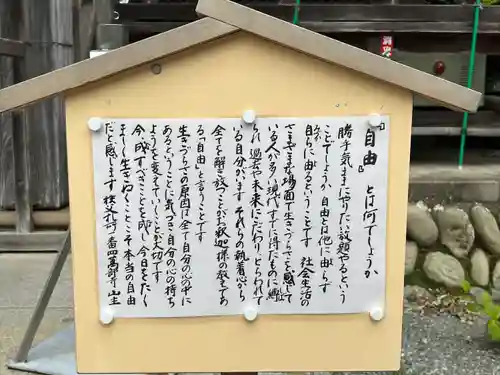 『自由』とは何でしょうか
勝手気ままにやりたい放題やるという
ことでしょうか 自由とは他に由らず
自らに由るということです 社会生活の
さまざまな場面で生きづらさを感じて
いる人が多い現代ですが得たものに縛
られ 過去や未来にこだわり とらわれて
いる自分がいます それらの執着心から
全てを解き放つことがお釈迦様の教えであ
る「自由」と言うことです
生きづらさの原因は全て自分の心の中に
あるということに気づき自分の心の持ち
ようを変えていくことが大切です
今成すべきことを即し 今日をただ
正しく生きぬくことこそ本当の自由
だと感じます 秩父札所一番四萬部寺山主